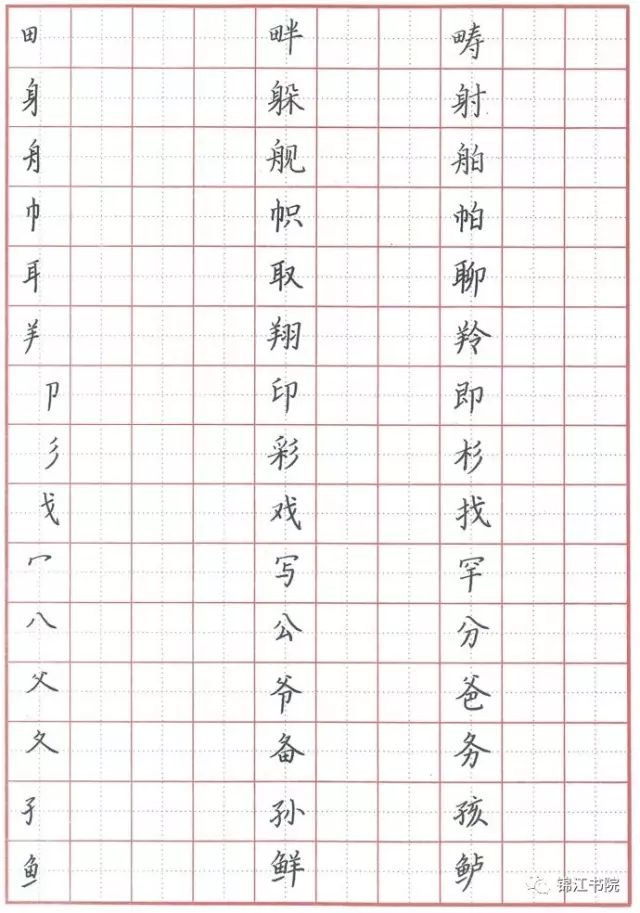 田 畔 畴
身 躲 射
舟 舰 舶
巾 帜 帕
耳 取 聊
羊 翔 羚
卩 印 即
彡 彩 杉
戈 戏 找
冖 写 罕
八 公 分
父 爷 爸
夂 备 务
子 孙 孩
鱼 鲜 鲈
锦江书院